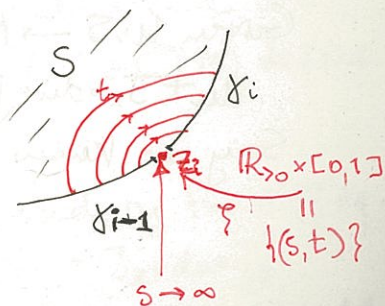 S
t
γi
zi
ℝ>0 × [0,1]
γi+1
ξ
||
{(s,t)}
s → ∞